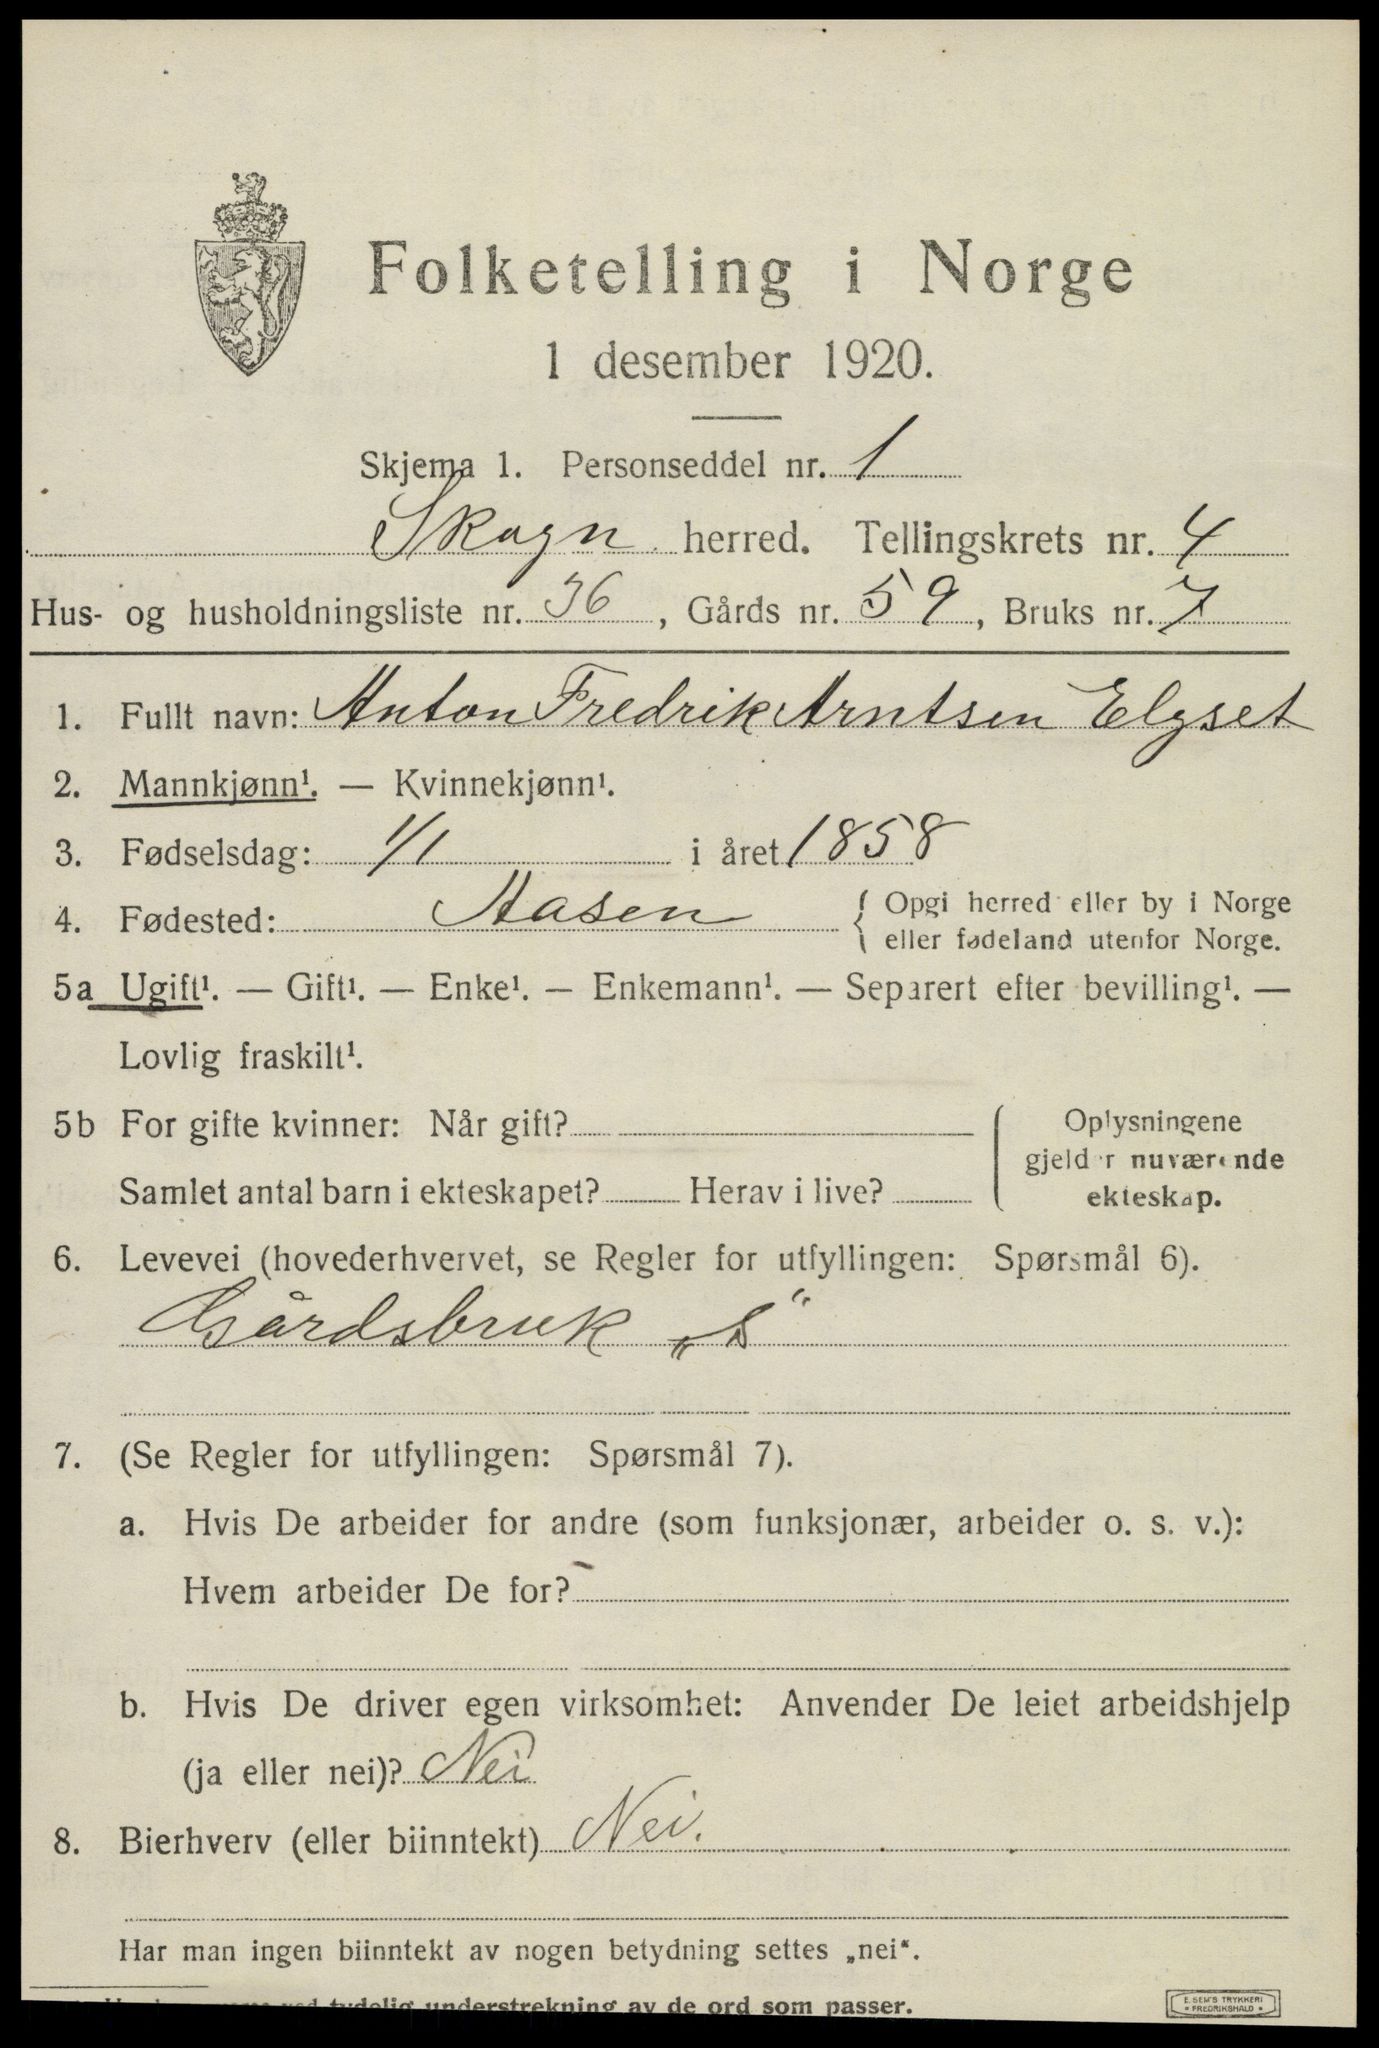 Folketelling i Norge
1 desember 1920.
Skjema 1. Personseddel nr. 1
Skogn herred. Tellingskrets nr. 4
Hus- og husholdningsliste nr. 36, Gårds nr. 59, Bruks nr. 7
1. Fullt navn: Anton Fredrik Arntsen Elgset
2. Mannkjønn¹. — Kvinnekjønn¹.
3. Fødselsdag: 1/1 i året 1858
4. Fødested: Aasen { Opgi herred eller by i Norge
eller fødeland utenfor Norge.
5a Ugift¹. — Gift¹. — Enke¹. — Enkemann¹. — Separert efter bevilling¹. —
Lovlig fraskilt¹.
5b For gifte kvinner: Når gift?
Samlet antal barn i ekteskapet? Herav i live?
Oplysningene
gjelder nuværende
ekteskap.
6. Levevei (hovederhvervet, se Regler for utfyllingen: Spørsmål 6).
Gårdsbruk „S“
7. (Se Regler for utfyllingen: Spørsmål 7).
a. Hvis De arbeider for andre (som funksjonær, arbeider o. s. v.):
Hvem arbeider De for?
b. Hvis De driver egen virksomhet: Anvender De leiet arbeidshjelp
(ja eller nei)? Nei
8. Bierhverv (eller biinntekt) Nei.
Har man ingen biinntekt av nogen betydning settes „nei“.
ved tydelig understrekning av de ord som passer.
E. SEM'S TRYKKERI
FREDRIKSHALD